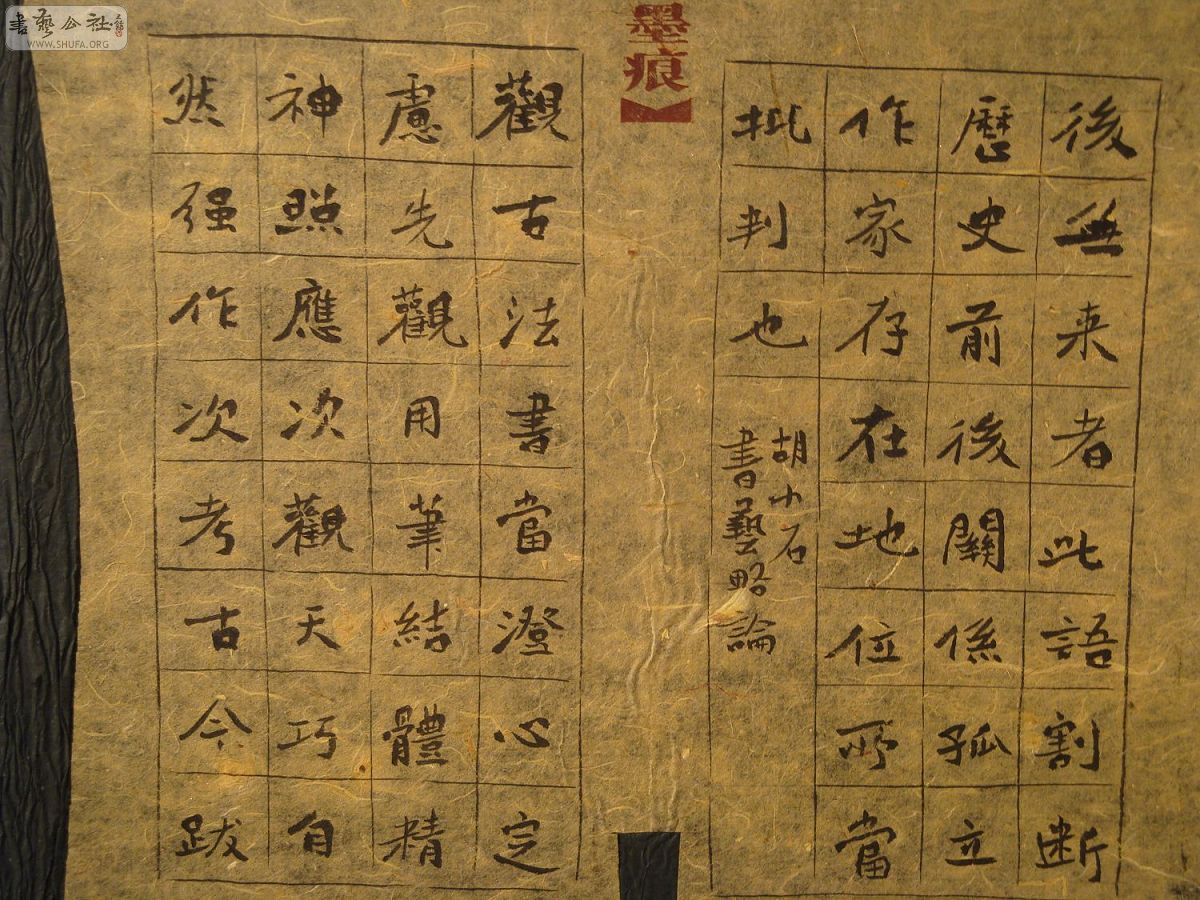 書藝公社
WWW.SHUFA.ORG
墨痕
後無来者此語割断
歷史前後關係孤立
作家存在地位所當
批判也
胡小石
書藝略論
觀古法書當澄心定
慮先觀用筆結體精
神照應次觀天巧自
然强作次考古今跋